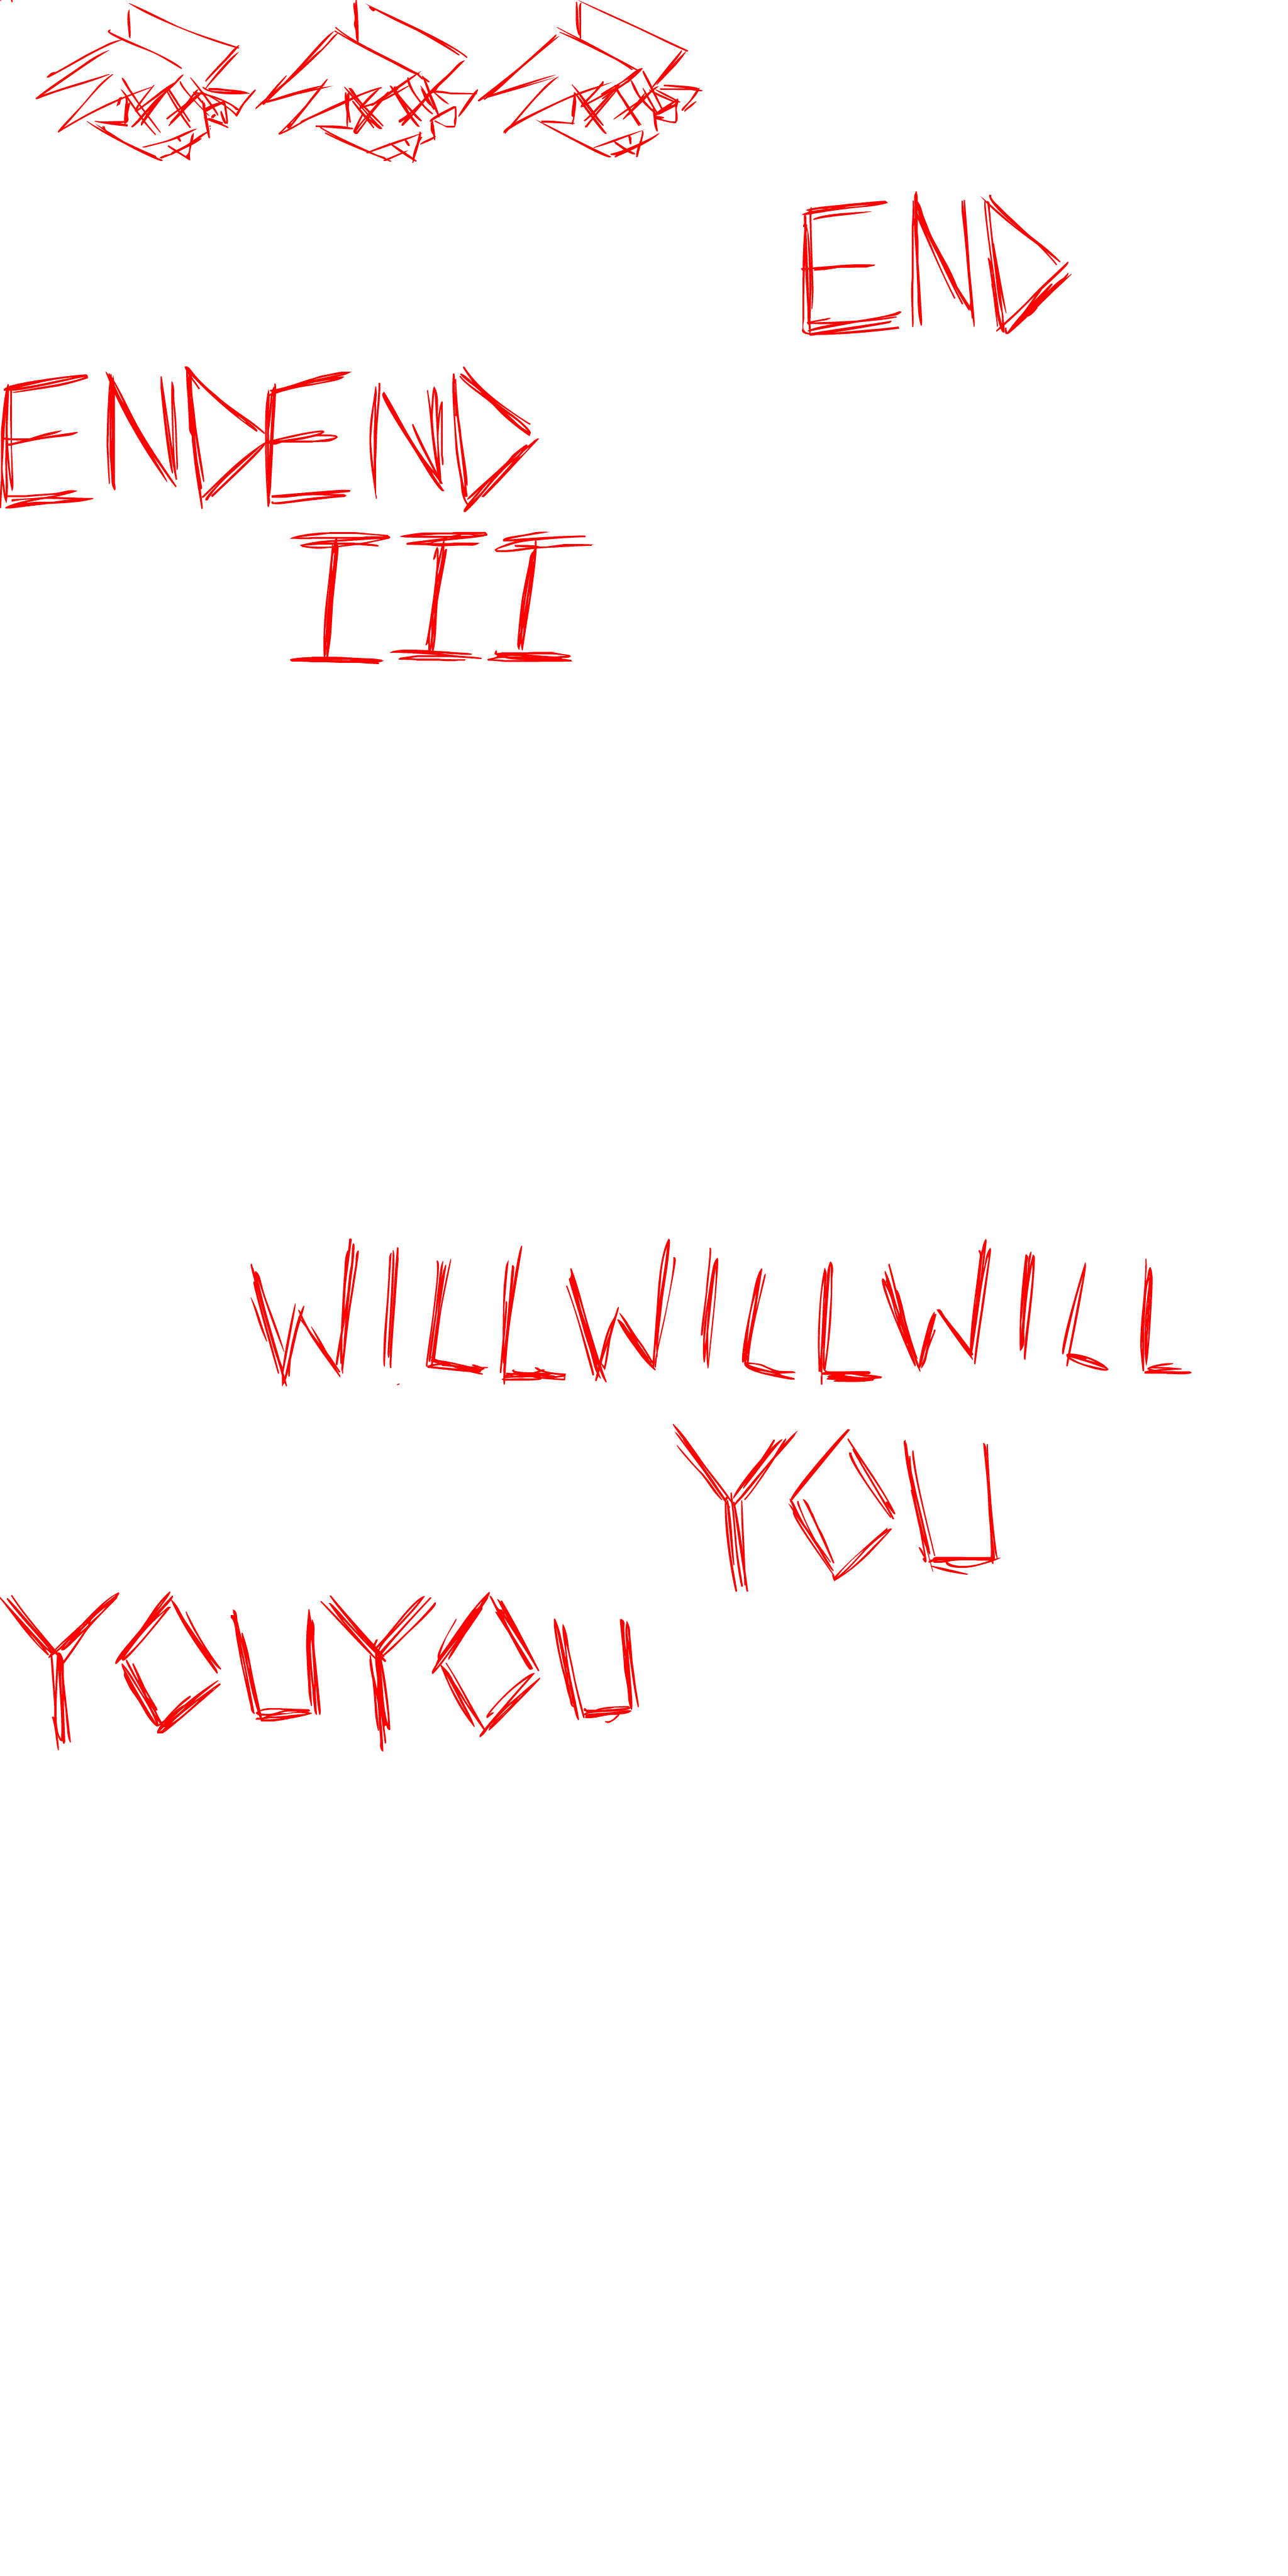 END
ENDEND
III
WILLWILLWILL
YOU
YOUYOU